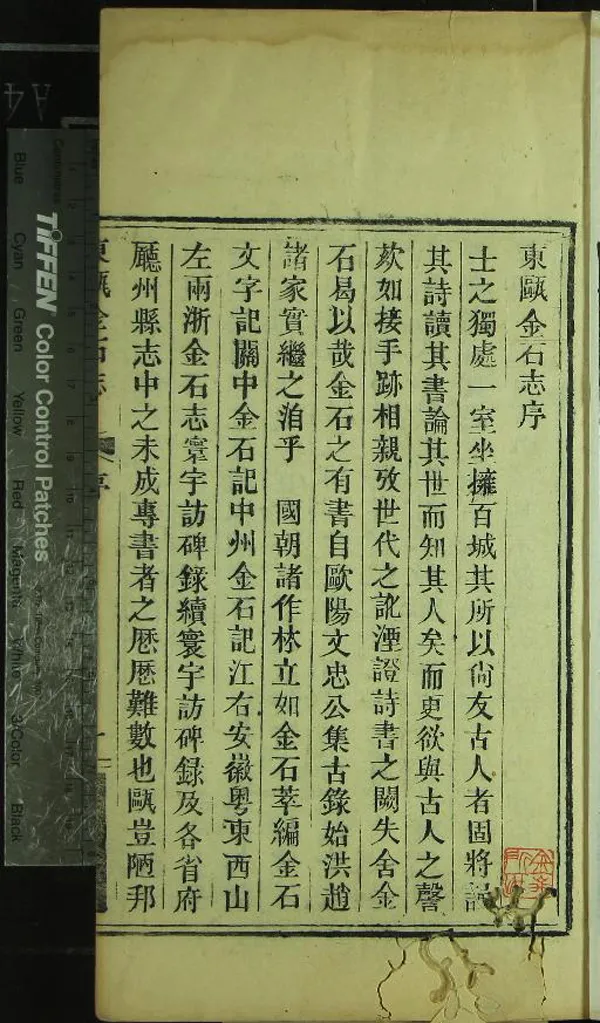 東甌金石志序
士之獨處一室坐擁百城其所以尙友古人者固將誦
其詩讀其書論其世而知其人矣而更欲與古人之謦
欬如接手跡相親攷世代之訛湮證詩書之闕失舍金
石曷以哉金石之有書自歐陽文忠公集古錄始洪趙
諸家實繼之洎乎 國朝諸作林立如金石萃編金石
文字記關中金石記中州金石記江右安徽粵東西山
左兩浙金石志寰宇訪碑錄續寰宇訪碑録及各省府
廳州縣志中之未成專書者之厯厯難數也甌豈陋邦
東甌金石志 序 一
TIFFEN Color Control Patches
Blue Cyan Green Yellow Red Magenta White 3/Color Black
A4